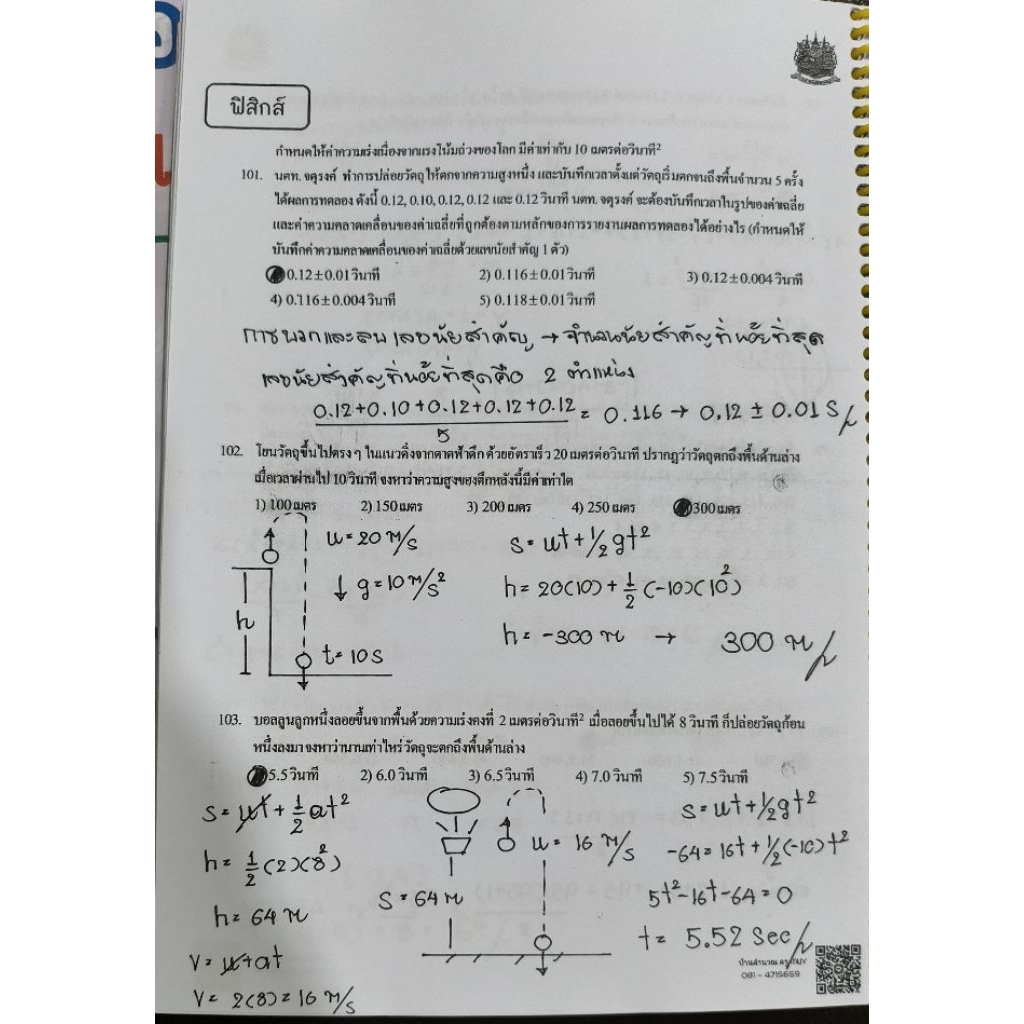 ฟิสิกส์
กำหนดให้ค่าความเร่งเนื่องจากแรงโน้มถ่วงของโลก มีค่าเท่ากับ 10 เมตรต่อวินาที²
101. นตท. จตุรงค์ ทำการปล่อยวัตถุให้ตกจากความสูงหนึ่ง และบันทึกเวลาตั้งแต่วัตถุเริ่มตกจนถึงพื้นจำนวน 5 ครั้ง
ได้ผลการทดลอง ดังนี้ 0.12, 0.10, 0.12, 0.12 และ 0.12 วินาที นตท. จตุรงค์ จะต้องบันทึกเวลาในรูปของค่าเฉลี่ย
และค่าความคลาดเคลื่อนของค่าเฉลี่ยที่ถูกต้องตามหลักของการรายงานผลการทดลองได้อย่างไร (กำหนดให้
บันทึกค่าความคลาดเคลื่อนของค่าเฉลี่ยด้วยเลขนัยสำคัญ 1 ตัว)
0.12 ± 0.01 วินาที 2) 0.116 ± 0.01 วินาที 3) 0.12 ± 0.004 วินาที
4) 0.116 ± 0.004 วินาที 5) 0.118 ± 0.01 วินาที
การบวกและลบ เลขนัยสำคัญ → จำนวนนัยสำคัญที่น้อยที่สุด
เลขนัยสำคัญที่น้อยที่สุดคือ 2 ตำแหน่ง
0.12+0.10+0.12+0.12+0.12 = 0.116 → 0.12 ± 0.01 S
5
102. โยนวัตถุขึ้นไปตรงๆ ในแนวดิ่งจากดาดฟ้าตึก ด้วยอัตราเร็ว 20 เมตรต่อวินาที ปรากฏว่าวัตถุตกถึงพื้นด้านล่าง
เมื่อเวลาผ่านไป 10 วินาที จงหาว่าความสูงของตึกหลังนี้มีค่าเท่าใด
1) 100 เมตร 2) 150 เมตร 3) 200 เมตร 4) 250 เมตร 300 เมตร
u = 20 m/s
s = ut + 1/2 gt²
↓ g = 10 m/s²
h = 20(10) + 1/2 (-10)(10²)
h
h = -300 m → 300 m
t = 10 s
103. บอลลูนลูกหนึ่งลอยขึ้นจากพื้นด้วยความเร่งคงที่ 2 เมตรต่อวินาที² เมื่อลอยขึ้นไปได้ 8 วินาที ก็ปล่อยวัตถุก้อน
หนึ่งลงมา จงหานานเท่าไหร่ วัตถุจะตกถึงพื้นด้านล่าง
5.5 วินาที 2) 6.0 วินาที 3) 6.5 วินาที 4) 7.0 วินาที 5) 7.5 วินาที
s = ut + 1/2 at²
h = 1/2 (2)(8²)
h = 64 m
v = u + at
v = 2(8) = 16 m/s
s = 64 m
u = 16 m/s
s = ut + 1/2 gt²
-64 = 16t + 1/2 (-10)t²
5t² - 16t - 64 = 0
t = 5.52 sec
081 - 4715669